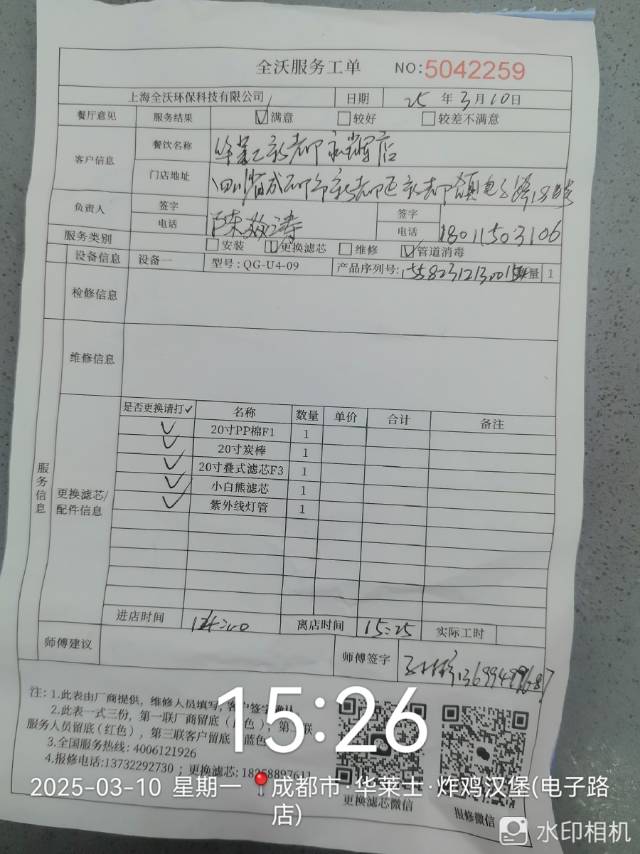 全沃服务工单 NO:5042259
上海全沃环保科技有限公司 日期 25 年 3 月 10 日
餐厅意见 服务结果 ☑满意 □较好 □较差不满意
客户信息 餐饮名称 华莱士新都
门店地址 四川省成都市新都区新都镇电子路18号
负责人 签字 签字
电话 电话 18011503106
服务类别 □安装 ☑更换滤芯 □维修 ☑管道消毒
设备信息 设备一 型号:QG-U4-09 产品序列号: 数量 1
检修信息
维修信息
服务信息
更换滤芯/配件信息
是否更换请打✓ 名称 数量 单价 合计 备注
✓ 20寸PP棉F1 1
✓ 20寸炭棒 1
✓ 20寸叠式滤芯F3 1
✓ 小白熊滤芯 1
✓ 紫外线灯管 1
进店时间 离店时间 15:25 实际工时
师傅建议 师傅签字
注: 1.此表由厂商提供，维修人员填写，客户签字确认
2.此表一式三份，第一联厂商留底
服务人员留底(红色)，第三联客户留底
3.全国服务热线: 4006121926
4.报修电话:13732292730 ; 更换滤芯:
更换滤芯微信 报修微信
15:26
2025-03-10 星期一 成都市·华莱士·炸鸡汉堡(电子路
店)
水印相机